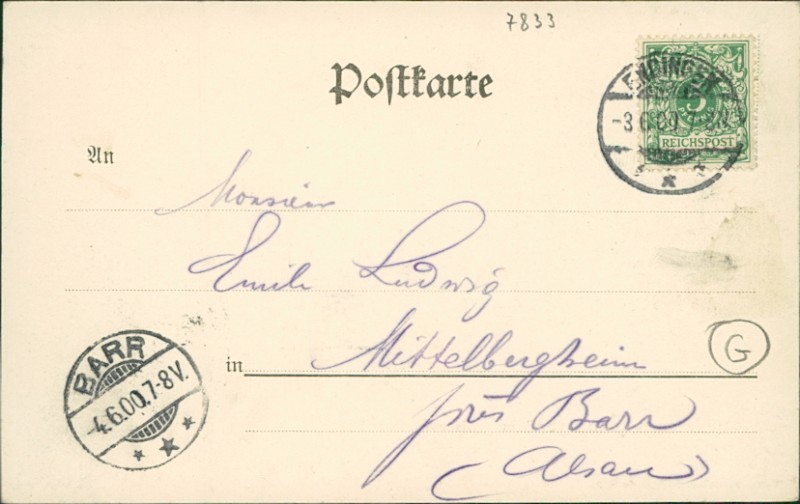 7833
Postkarte
ENDINGEN
-3.6.00.7-8N.
5
REICHSPOST
An
Monsieur
Emile Ludwig
in Mittelbergheim
près Barr
(Alsace)
BARR
-4.6.00.7-8V.
G